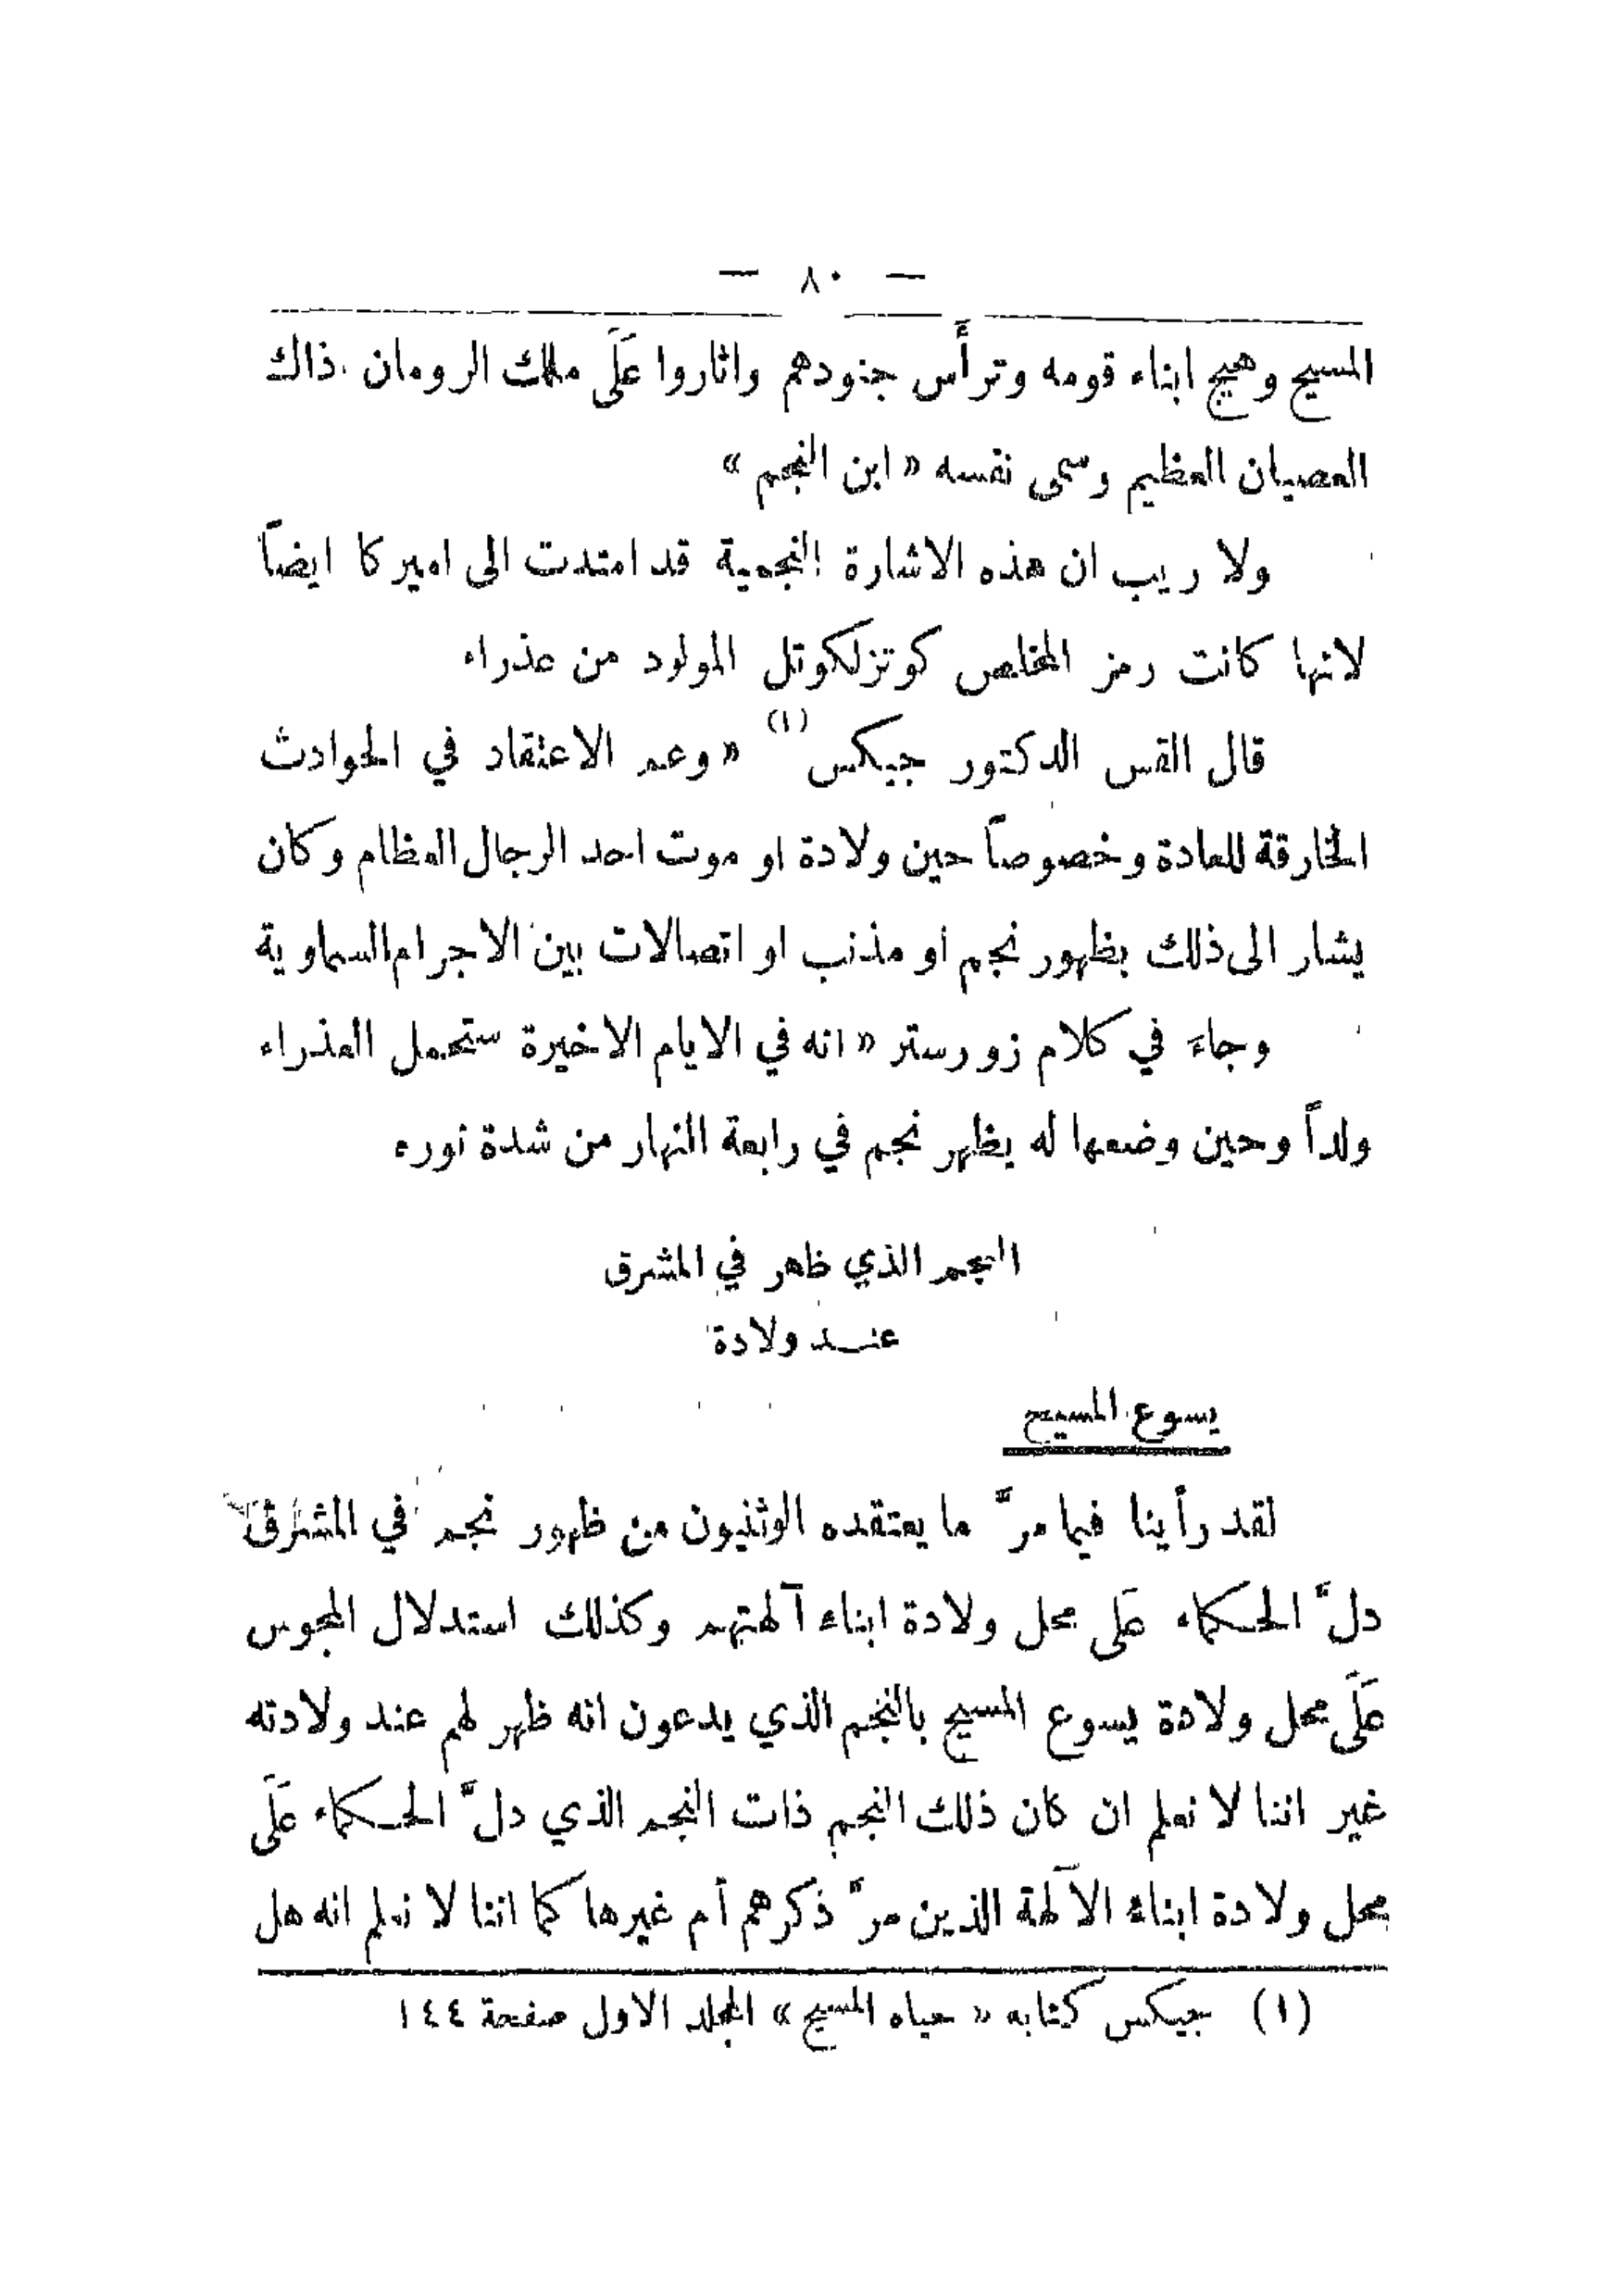 — ٨٠ —
المسيح وهيج ابناء قومه وترأَّس جنودهم واثاروا عَلَى ملك الرومان ذاك
العصيان العظيم وسمى نفسه « ابن النجم »
ولا ريب ان هذه الاشارة النجمية قد امتدت الى اميركا ايضاً
لانها كانت رمز المخلص كوتزلكوتل المولود من عذراء
قال القس الدكتور جيكس (١) « وعم الاعتقاد في الحوادث
الخارقة للعادة وخصوصاً حين ولادة او موت احد الرجال العظام وكان
يشار الى ذلك بظهور نجم او مذنب او اتصالات بين الاجرام السماوية
وجاء في كلام زورستر « انه في الايام الاخيرة ستحمل العذراء
ولداً وحين وضعها له يظهر نجم في رابعة النهار من شدة نوره
النجم الذي ظهر في المشرق
عند ولادة
يسوع المسيح
لقد رأينا فيما مرَّ ما يعتقده الوثنيون من ظهور نجم في المشرق
دلَّ الحكماء عَلى محل ولادة ابناء آلهتهم وكذلك استدلال المجوس
عَلَى محل ولادة يسوع المسيح بالنجم الذي يدعون انه ظهر لهم عند ولادته
غير اننا لا نعلم ان كان ذلك النجم ذات النجم الذي دلَّ الحكماء عَلَى
محل ولادة ابناء الآلهة الذين مرَّ ذكرهم أم غيرها كما اننا لا نعلم انه هل
(١) جيكس كتابه « حياه المسيح » المجلد الاول صفحة ١٤٤